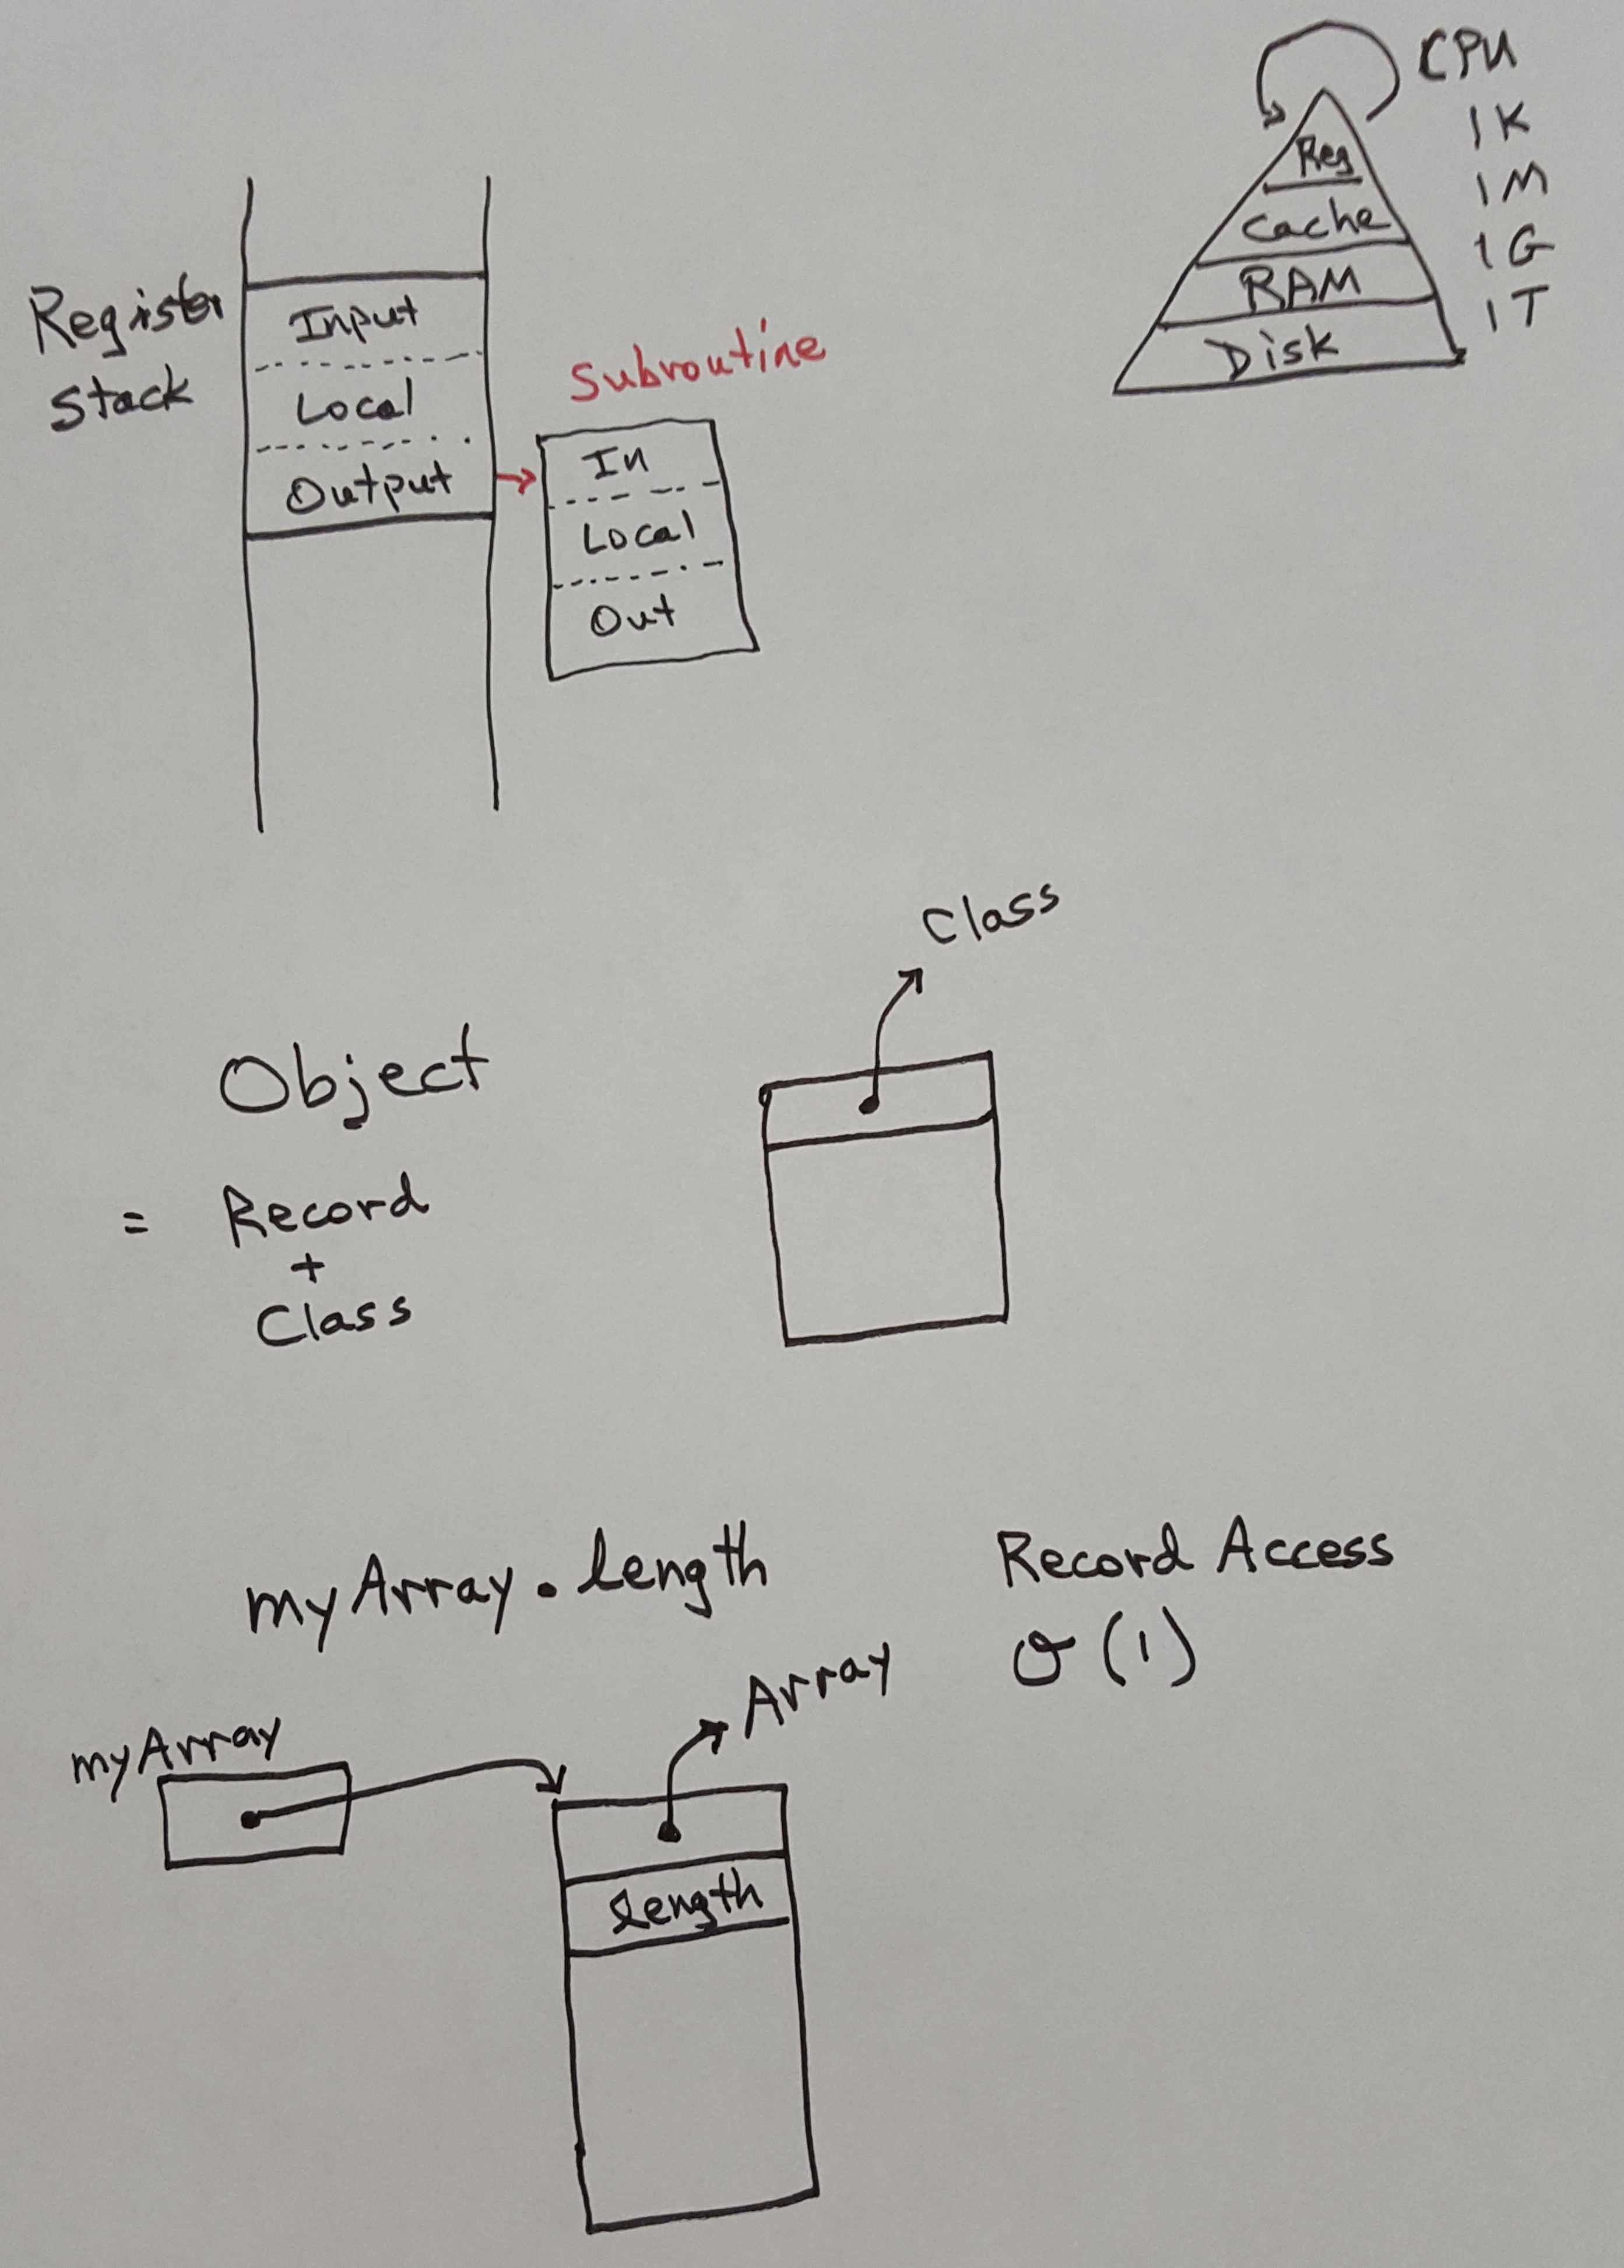 CPU
Reg 1K
Cache 1M
RAM 1G
Disk 1T
Register
Stack
Input
Local
Output
Subroutine
In
Local
Out
Class
Object
= Record
+
Class
myArray.length
Record Access
O(1)
Array
myArray
length